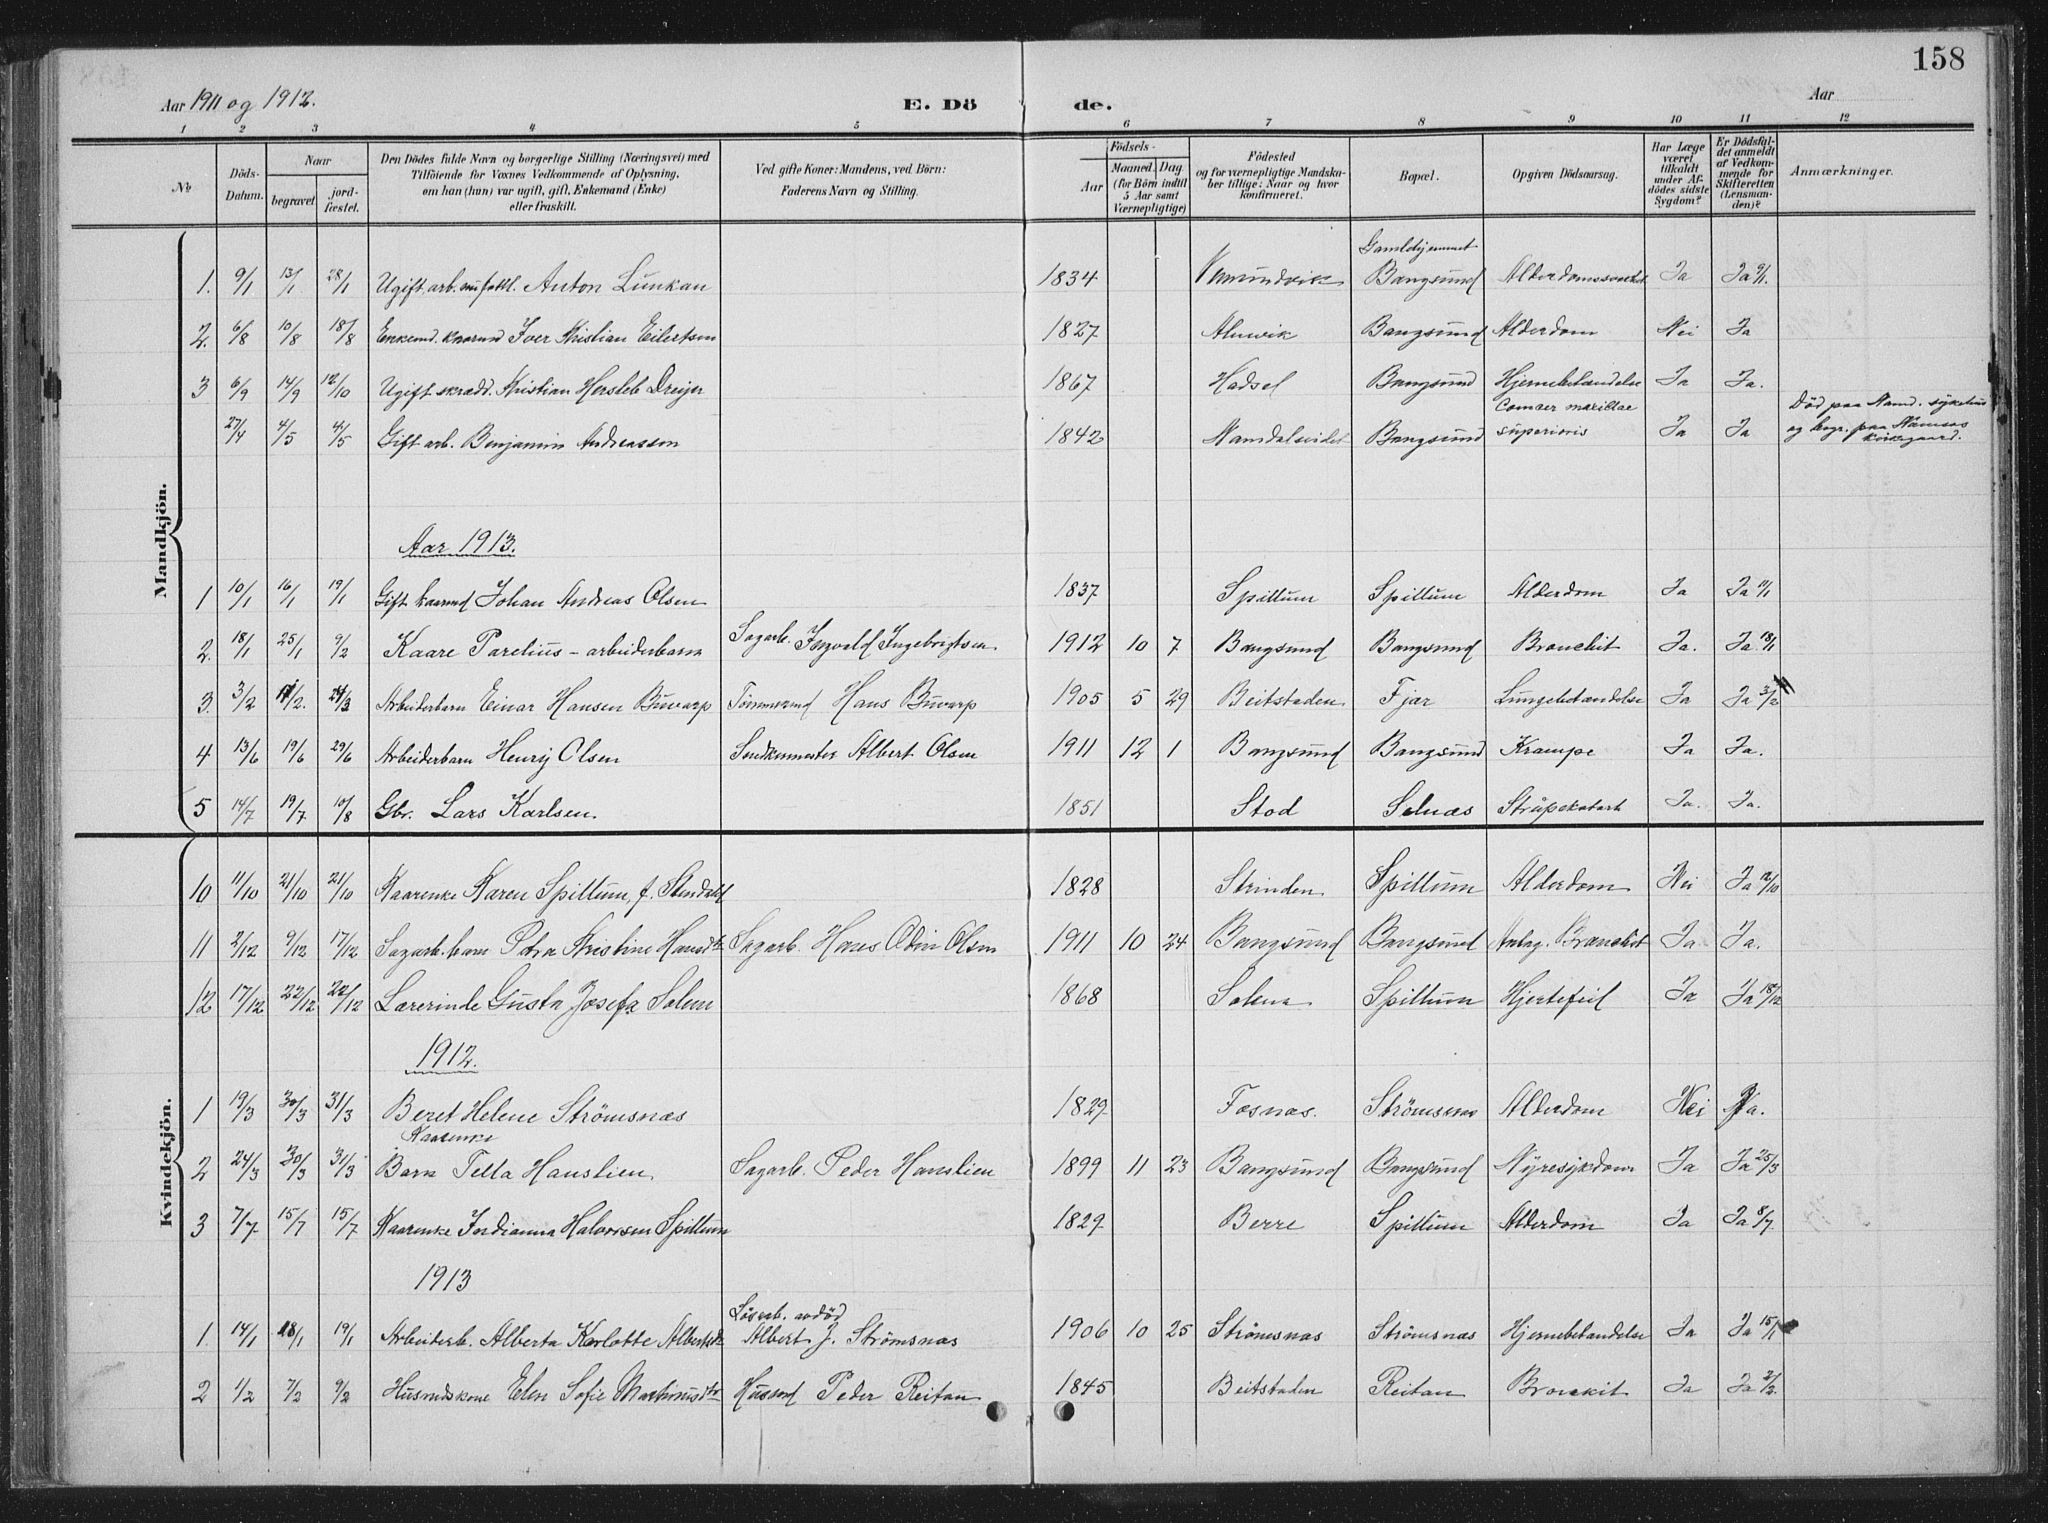 158
Aar 1911 og 1912. E. Dö de. Aar
1 2 3 4 5 6 7 8 9 10 11 12
No
Döds-Datum.
Naar begravet jord-fæstet.
Den Dödes fulde Navn og borgerlige Stilling (Næringsvei) med Tilföiende for Voxnes Vedkommende af Oplysning, om han (hun) var ugift, gift, Enkemand (Enke) eller fraskilt.
Ved gifte Koner: Mandens, ved Börn: Faderens Navn og Stilling.
Födsels- Aar Maaned. Dag (for Börn indtil 5 Aar samt Værnepligtige)
Födested og for værnepligtige Mandskaber tillige: Naar og hvor konfirmeret.
Bopæl.
Opgiven Dödsaarsag.
Har Læge været tilkaldt under Afdödes sidste Sygdom?
Er Dödsfaldet anmeldt af Vedkommende for Skifteretten (Lensmanden)?
Anmærkninger.
Mandkjön.
1. 9/1 13/1 28/1 Ugift arb. Anton Lunkan 1834 Vemundvik Gamlehjemmet Bangsund Alderdomssvækket Ja Ja 9/1.
2. 6/8 10/8 18/8 Enkemd. kaarmd Iver Kristian Eilertsen 1827 Alnvik Bangsund Alderdom Nei Ja
3 6/9 14/9 12/10 Ugift skrædd. Kristian Hersleb Dreijer 1867 Hadsel Bangsund Hjernebetændelse Ja Ja.
27/4 4/5 4/5 Gift arb. Benjamin Andreassen 1842 Namdalseidet Bangsund Cancer maxillae superioris Ja Ja Død paa Namd. sykehus og begr. paa Namsos kirkegaard.
Aar 1913.
1 10/1 16/1 19/1 Gift kaarmd Johan Andreas Olsen 1837 Spillum Spillum Alderdom Ja Ja 11/1
2. 18/1 25/1 9/2 Kaare Parelius - arbeiderbarn Sagarb. Ingvald Ingebrigtsen 1912 10 7 Bangsund Bangsund Bronchit Ja. Ja 18/1
3. 3/2 11/2. 24/3 Arbeiderbarn Einar Hansen Buvarp Tømmermd Hans Buvarp 1905 5 29 Beitstaden Fjær Lungebetændelse Ja Ja 3/2
4 13/6 19/6 29/6 Arbeiderbarn Henry Olsen Albert Olsen 1911 12 1 Bangsund Bangsund Krampe Ja Ja.
5 14/7 19/7 10/8 Gbr. Lars Karlsen. 1851 Stod Selnæs Strupekatarh Ja. Ja.
Kvindekjön.
10 11/10 21/10 21/10 Kaarenke Karen Spillum, f. 1828 Strinden Spillum Alderdom Nei Ja 12/10
11 2/12 9/12 17/12 Sagarb. barn Petra Kristine Hansdtr Sagarb. Hans Odin Olsen 1911 10 24 Bangsund Bangsund Bronchit Ja Ja.
12 17/12 22/12 22/12 Lærerinde Gusta Josefa Solem 1868 Solem Spillum Hjertefeil Ja Ja 18/12
1912.
1 19/3 30/3 31/3 Beret Helene Strömsnæs Kaarenke 1829 Fosnæs. Strömsnæs Alderdom Nei Ja.
2 24/3 30/3 31/3 Barn Tella Hanslien Sagarb. Peder Hanslien 1899 11 23 Bangsund Bangsund Nyresykdom Ja Ja 25/3
3 7/7 15/7 15/7 Kaarenke Indianna Halvorsen Spillum 1829 Berre Spillum Alderdom Ja Ja 8/7
1913
1. 14/1 18/1 19/1 Arbeiderb. Alberta Karlotte Albertsdtr Løsarb. avdød Albert J. Strömsnæs 1906 10 25 Strömsnæs Strömsnæs Hjernebetændelse Ja Ja 15/1
2 1/2 7/2 9/2 Husmdskone Elen Sofie Martinusdtr Husmd Peder Reitan 1845 Beitstaden Reitan Bronkit Ja Ja 2/2.